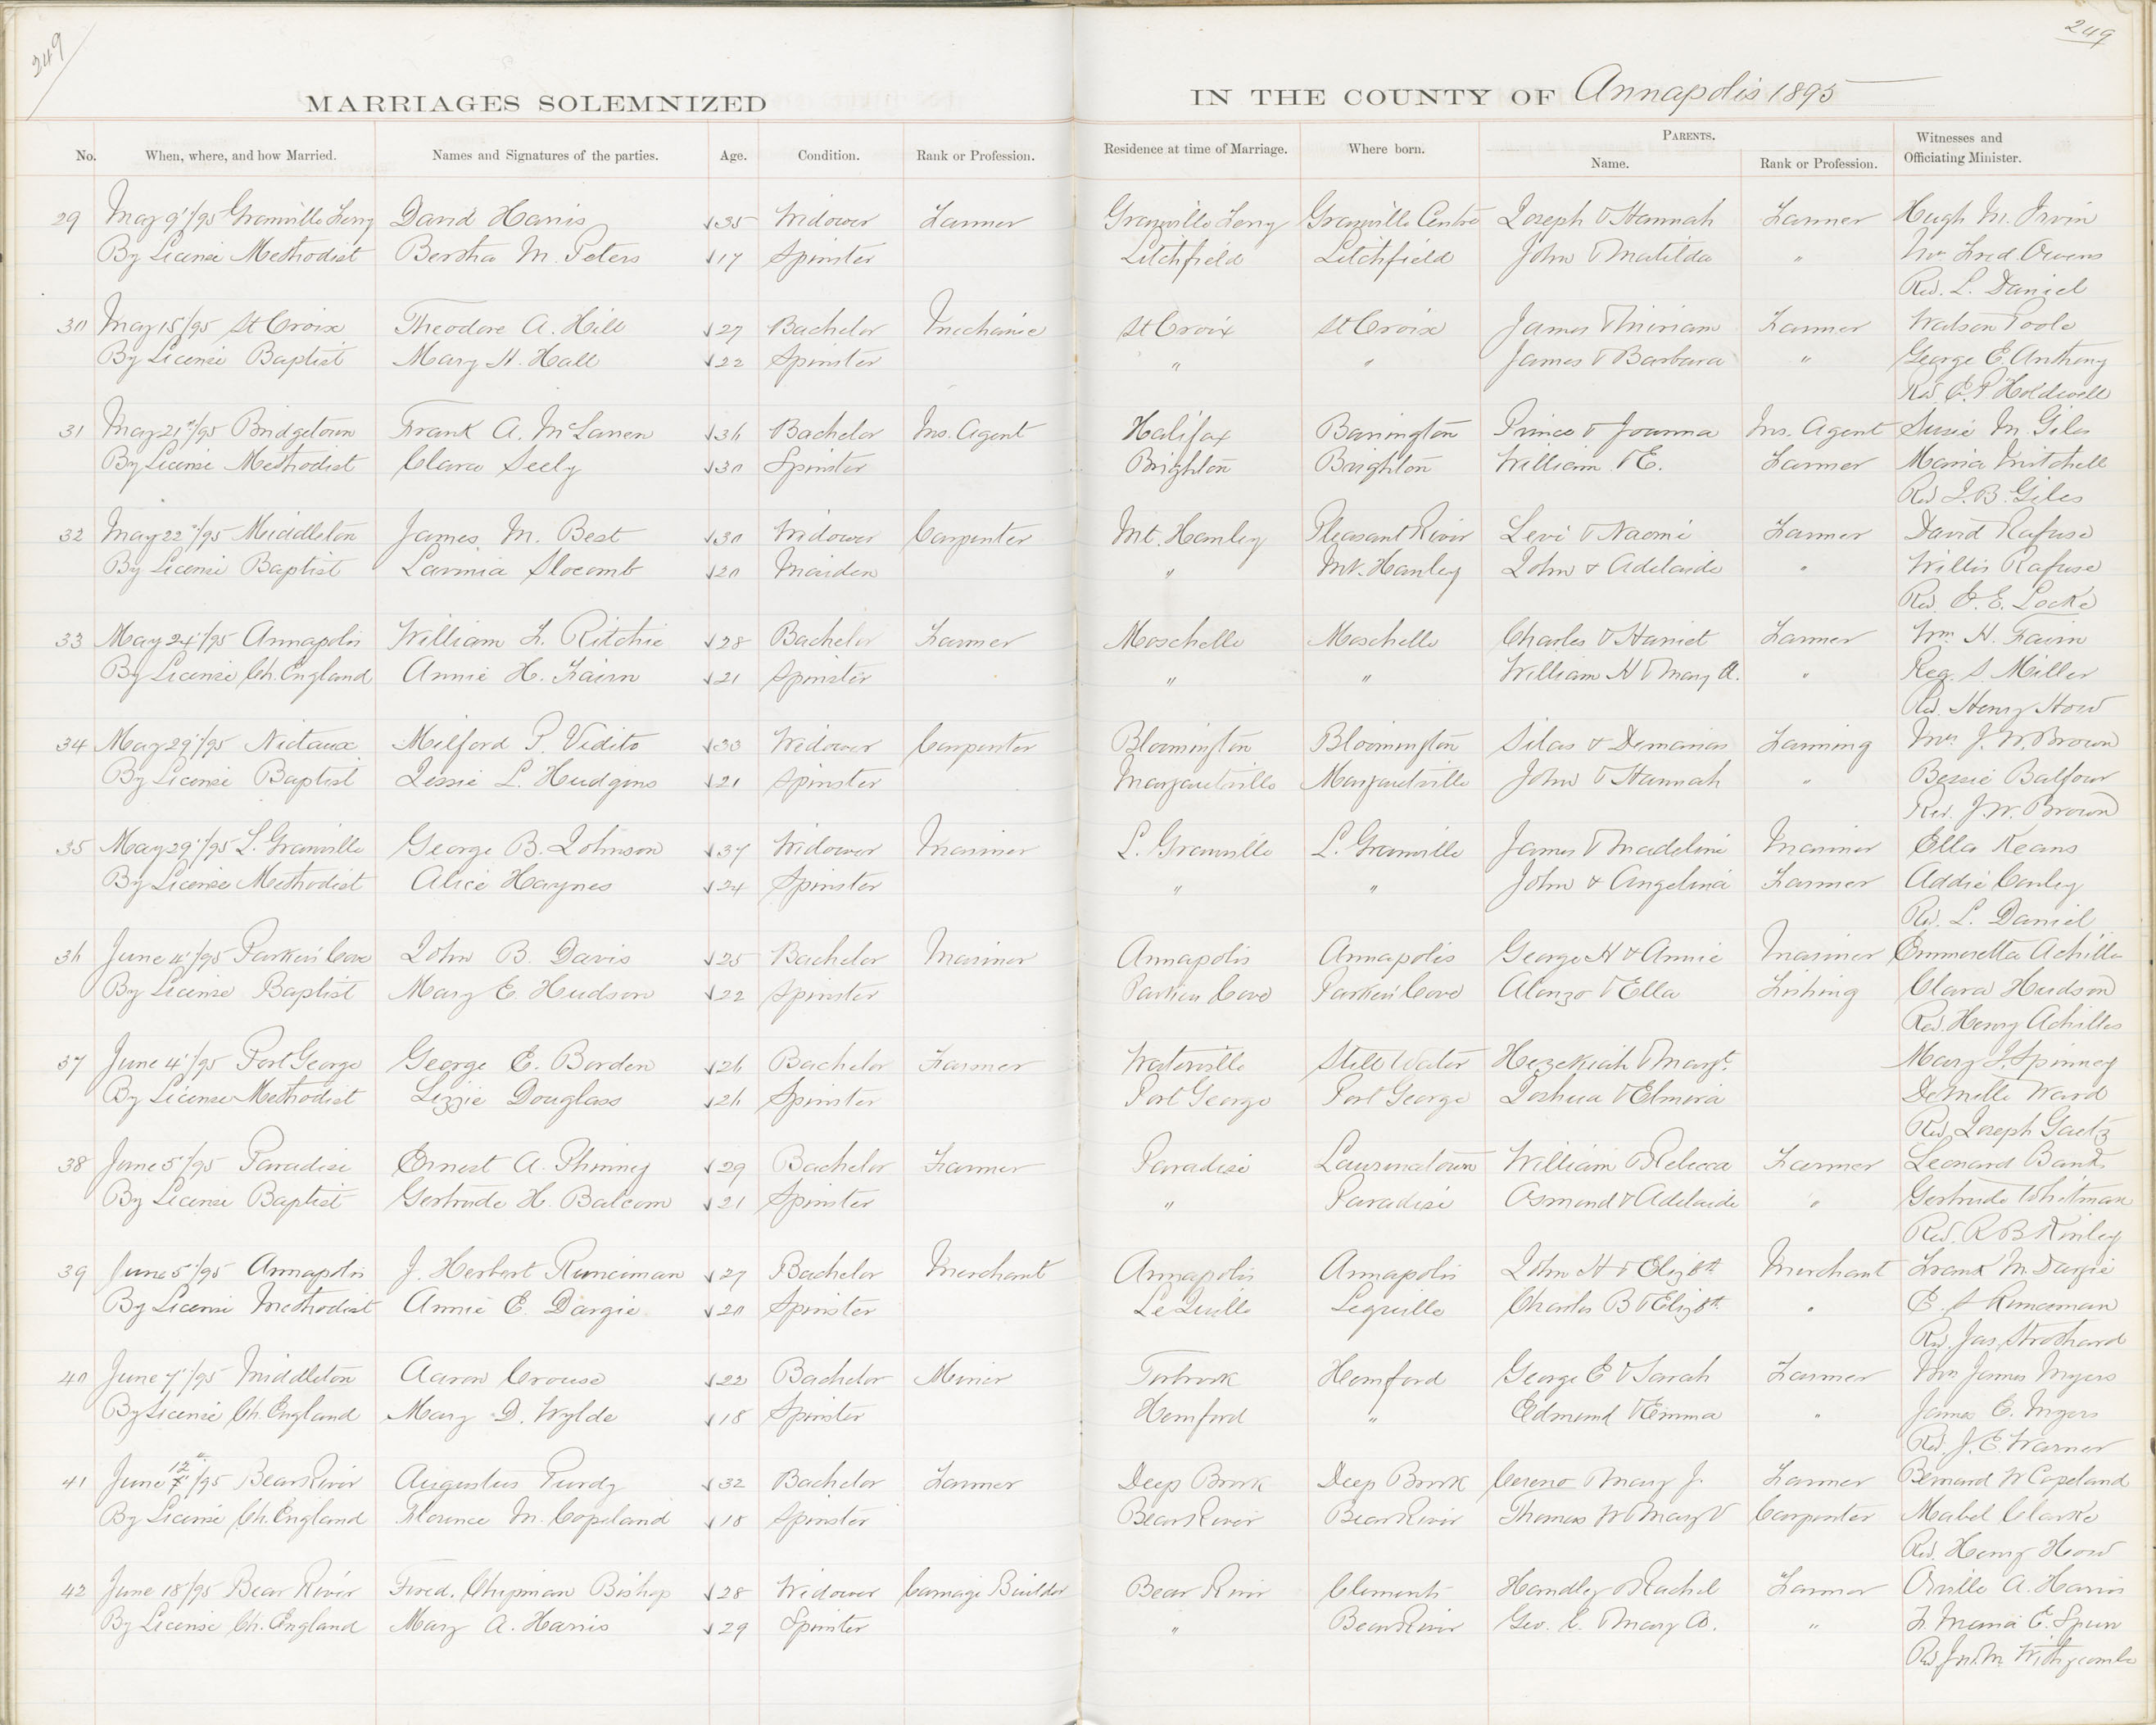 249
249
MARRIAGES SOLEMNIZED IN THE COUNTY OF Annapolis 1895
No. When, where, and how Married. Names and Signatures of the parties. Age. Condition. Rank or Profession. Residence at time of Marriage. Where born. PARENTS. Name. Rank or Profession. Witnesses and Officiating Minister.
29 May 9"/95 Granville Ferry David Harris √35 Widower Farmer Granville Ferry Granville Centre Joseph & Hannah Farmer Hugh M. Irvin
By License Methodist Bertha M. Peters √17 Spinster Litchfield Litchfield John & Matilda " Fred Owens
Rev. L. Daniel
30 May 15"/95 St Croix Theodore A. Hill √27 Bachelor Mechanic St Croix St Croix James & Miriam Farmer Watson Poole
By License Baptist Mary H. Hall √22 Spinster " " James & Barbara " George E. Anthony
Rev. E. P. Holdwell
31 May 21st/95 Bridgetown Frank A. McLaren √36 Bachelor Ins. Agent Halifax Barrington Prince & Joanna Ins. Agent Susie M. Giles
By License Methodist Clara Seely √30 Spinster Brighton Brighton William & E. Farmer Maria Mitchell
Rev J. B. Giles
32 May 22"/95 Middleton James M. Best √30 Widower Carpenter Mt. Hanley Pleasant River Levi & Naomi Farmer David Rafuse
By License Baptist Lavinia Slocomb √20 Maiden " Mt. Hanley John & Adelaide " Willis Rafuse
Rev. E. E. Locke
33 May 24"/95 Annapolis William F. Ritchie √28 Bachelor Farmer Moschelle Moschelle Charles & Harriet Farmer Wm H. Fairn
By License Ch. England Annie H. Fairn √21 Spinster " " William H & Mary A. " Reg. S. Miller
Rev. Henry How
34 May 29"/95 Nictaux Milford P. Vidito √33 Widower Carpenter Bloomington Bloomington Silas & Farming Mrs J. W. Brown
By License Baptist Jessie L. Hudgins √21 Spinster Margaretville Margaretville John & Hannah " Bessie Balfour
Rev. J. W. Brown
35 May 29"/95 L. Granville George B. Johnson √37 Widower Mariner L. Granville L. Granville James & Madeline Mariner Ella Keans
By License Methodist Alice Haynes √24 Spinster " " John & Angelina Farmer Addie Conley
Rev. L. Daniel
36 June 4"/95 Parkers' Cove John B. Davis √25 Bachelor Mariner Annapolis Annapolis George H & Annie Mariner Emmeretta Achilles
By License Baptist Mary E. Hudson √22 Spinster Parkers Cove Parkers' Cove Alonzo & Ella Fishing Clara Hudson
Rev. Henry Achilles
37 June 4"/95 Port George George E. Borden √26 Bachelor Farmer Waterville Still Water Hezekiah & Margt. Mary S. Spinney
By License Methodist Lizzie Douglass √26 Spinster Port George Port George Joshua & Elmira DeMille Ward
Rev. Joseph Gaetz
38 June 5"/95 Paradise Ernest A. Phinney √29 Bachelor Farmer Paradise Lawrencetown William & Rebecca Farmer Leonard Banks
By License Baptist Gertrude H. Balcom √21 Spinster " Paradise Osmond & Adelaide " Gertrude Whitman
Rev. R B Kinley
39 June 5"/95 Annapolis J. Herbert Runciman √27 Bachelor Merchant Annapolis Annapolis John H & Elizbth Merchant Frank M Dargie
By License Methodist Annie E. Dargie √20 Spinster LeQuille Lequille Charles B & Elizbth " E. S Runciman
Rev. Jas. Strothard
40 June 7"/95 Middleton Aaron Crouse √22 Bachelor Miner Torbrook Hemford George E & Sarah Farmer Mrs James Myers
By License Ch. England Mary D. Wylde √18 Spinster Hemford " Edmund & Emma " James E. Myers
Rev. J. E. Warner
41 June 12"/95 Bear River Augustus Purdy √32 Bachelor Farmer Deep Brook Deep Brook Cereno & Mary J. Farmer Bernard W Copeland
By License Ch. England Florence M. Copeland √18 Spinster Bear River Bear River Thomas W & Mary V Carpenter Mabel Clarke
Rev. Henry How
42 June 18"/95 Bear River Fred. Chipman Bishop √28 Widower Carriage Builder Bear River Clements Handley & Rachel Farmer Orville A. Harris
By License Ch. England Mary A. Harris √29 Spinster " Bear River Geo. C. & Mary A. "
Rev Jno. M. Withycombe